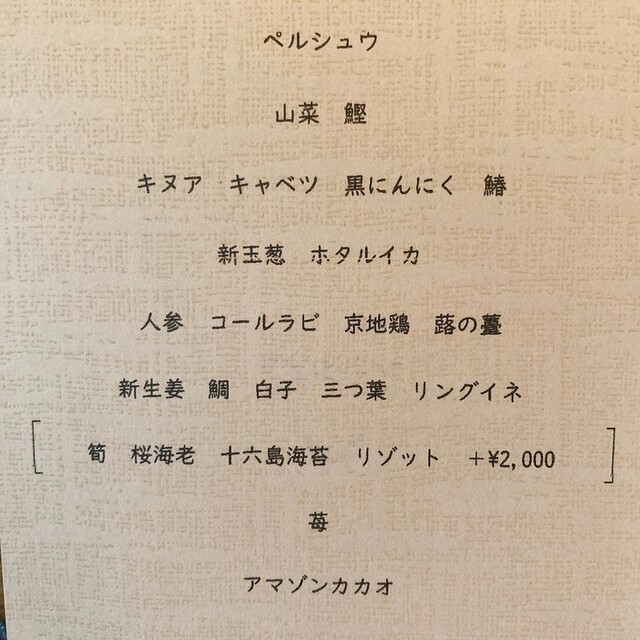 ペルシュウ
山菜　鰹
キヌア　キャベツ　黒にんにく　鰆
新玉葱　ホタルイカ
人参　コールラビ　京地鶏　蕗の薹
新生姜　鯛　白子　三つ葉　リングイネ
筍　桜海老　十六島海苔　リゾット　+¥2,000
苺
アマゾンカカオ